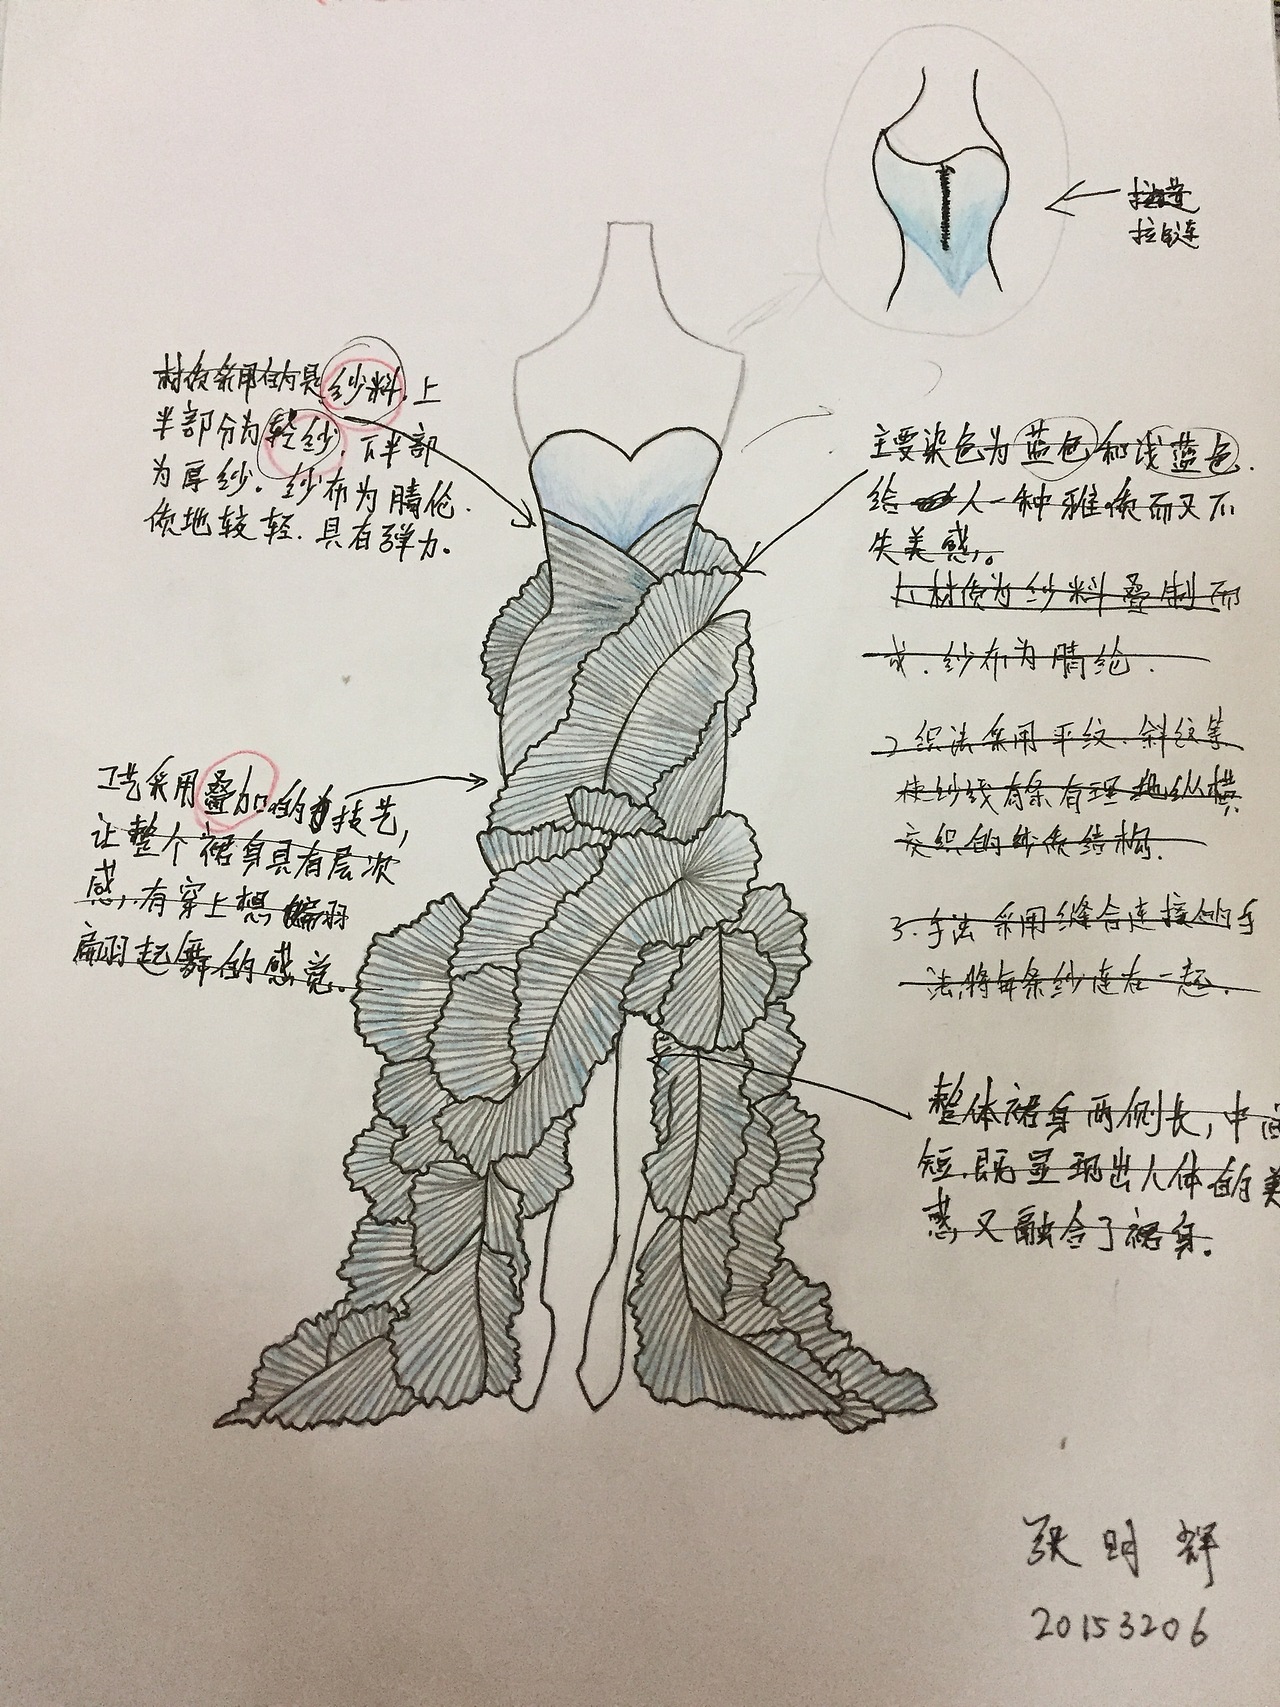 拉链
材质采用的是纱料,上
半部分为轻纱.下半部
为厚纱.纱布为腈伦.
质地较轻.具有弹力。
主要染色为蓝色和浅蓝色.
给人一种雅质而又不
失美感。
材质为纱料叠制而
成.纱布为腈纶.
2 织法采用平纹.斜纹等
使纱线有条有理地纵横
交织的纱质结构.
3.手法采用缝合连接的手
法,将每条纱连在一起.
工艺采用叠加的技艺,
让整个裙身具有层次
感,.有穿上想
翩翩起舞的感觉.
整体裙身两侧长,中间
短.既显现出人体的美
感,又融合了裙身.
张明辉
20153206